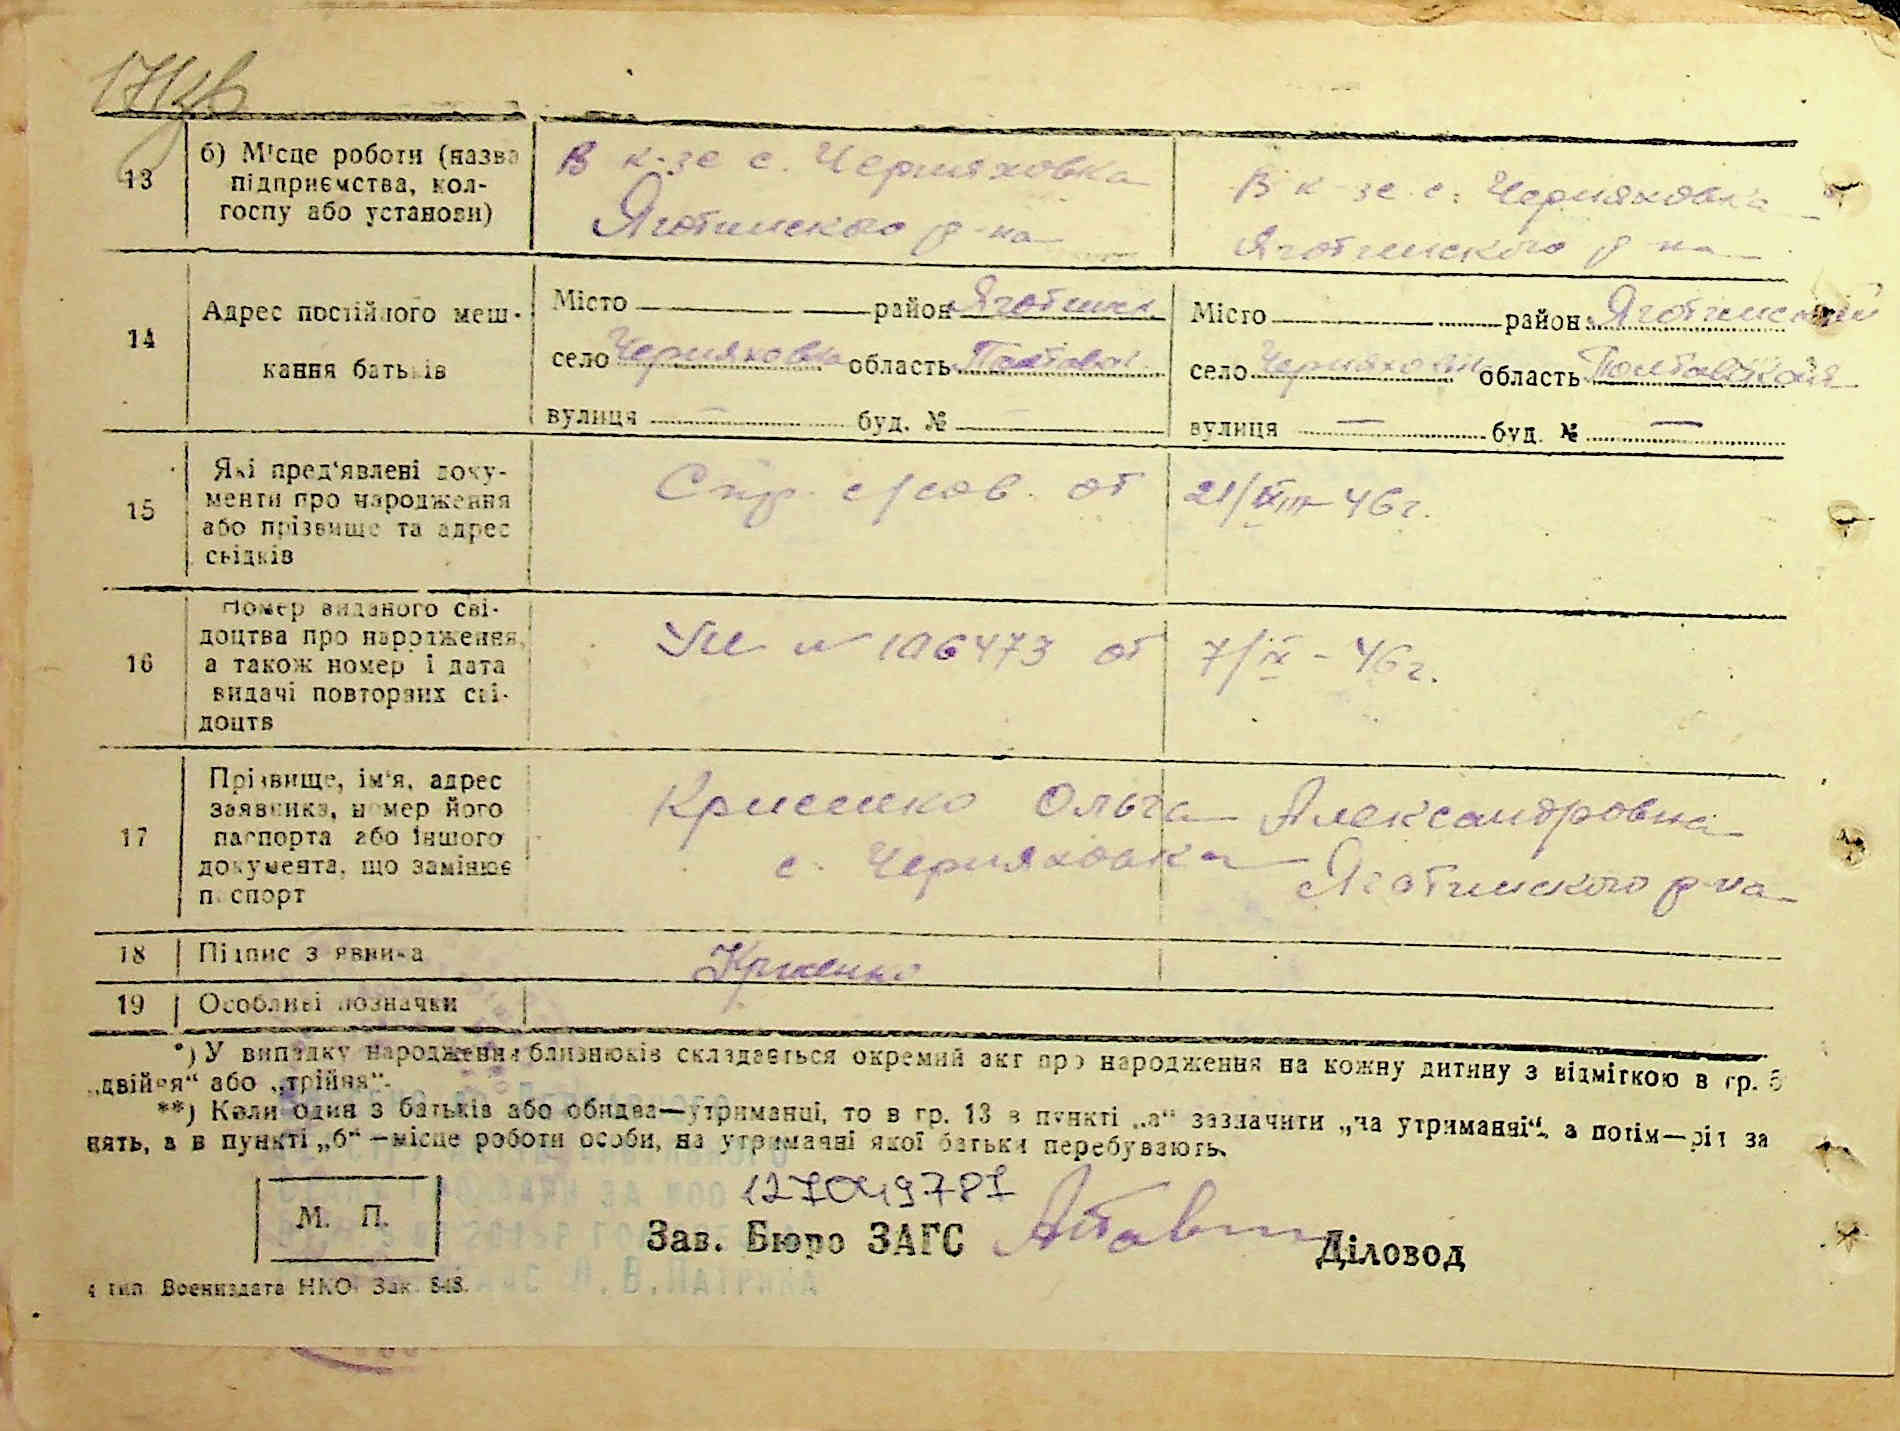 171зв
13
б) Місце роботи (назва підприємства, кол-
госпу або установи)
В к-зе с. Черняховка
Яготинского р-на
В к-зе с. Черняховка
Яготинского р-на
14
Адрес постійного меш-
кання батьків
Місто район Яготинск
село Черняховка область Полтавск.
вулиця — буд. № —
Місто район Яготинский
село Черняховка область Полтавская
вулиця — буд. № —
15
Які пред'явлені доку-
менти про народження
або прізвище та адрес
свідків
Спр. с/сов. от 21/VIII-46г.
16
Номер виданого сві-
доцтва про народження,
а також номер і дата
видачі повторних сві-
доцтв
№ 106473 от 7/IX-46г.
17
Прізвище, ім'я, адрес
заявника, номер його
паспорта або іншого
документа, що замінює
паспорт
Ольга Александровна
с. Черняховка Яготинского р-на
18 Підпис заявника
19 Особливі позначки
*) У випадку народження близнюків складається окремий акт про народження на кожну дитину з відміткою в гр. 5
„двійня“ або „трійня“.
**) Коли один з батьків або обидва—утриманці, то в гр. 13 в пункті „а“ зазначити „на утриманні“, а потім—рід за
нять, а в пункті „б“—місце роботи особи, на утриманні якої батьки перебувають.
М. П.
127049787
Зав. Бюро ЗАГС
Діловод
4 тип. Воениздата НКО. Зак. 848.